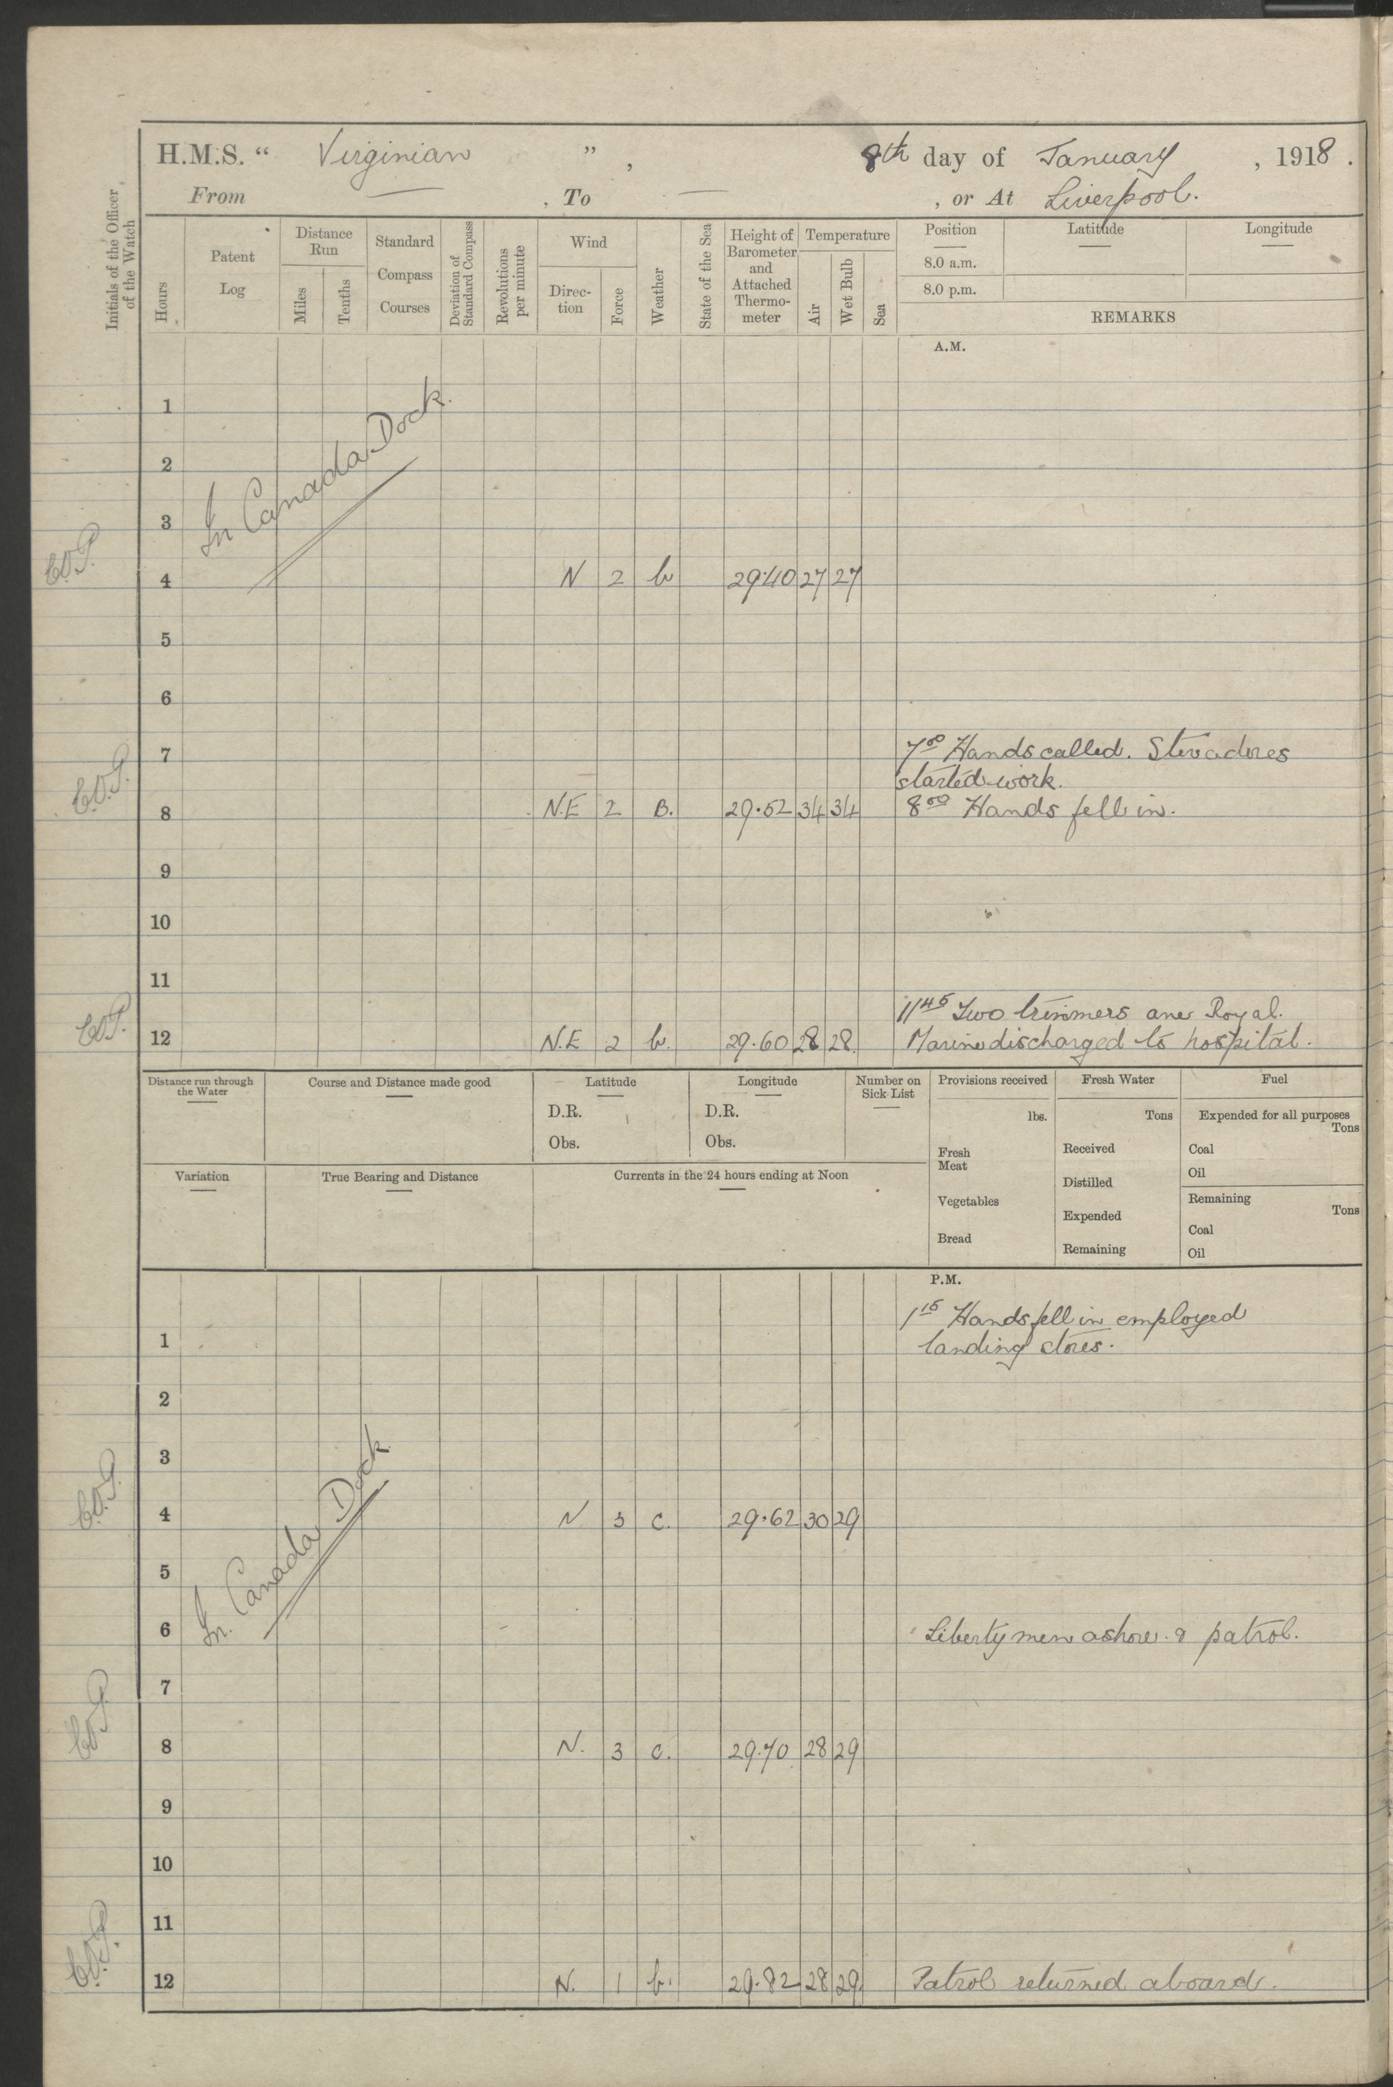 H.M.S. “ Virginian ” , 8th day of January , 1918 .
From — , To — , or At Liverpool.
Initials of the Officer of the Watch
Hours
Patent Log
Distance Run
Miles
Tenths
Standard Compass Courses
Deviation of Standard Compass
Revolutions per minute
Wind
Direc-tion
Force
Weather
State of the Sea
Height of Barometer and Attached Thermo-meter
Temperature
Air
Wet Bulb
Sea
Position
Latitude
Longitude
8.0 a.m.
8.0 p.m.
REMARKS
A.M.
In Canada Dock.
1
2
3
4 N 2 b 29.40 27 27
5
6
7 7 00 Hands called. Stevadores
started work.
8 N.E 2 B. 29.52 34 34 8 00 Hands fell in.
9
10
11
11 45 Two trimmers one Royal.
12 N.E 2 b. 29.60 28 28. Marine discharged to hospital.
Distance run through the Water
Course and Distance made good
Latitude
D.R.
Obs.
Longitude
D.R.
Obs.
Number on Sick List
Provisions received
lbs.
Fresh Meat
Vegetables
Bread
Fresh Water
Tons
Received
Distilled
Expended
Remaining
Fuel
Expended for all purposes
Tons
Coal
Oil
Remaining
Tons
Coal
Oil
Variation
True Bearing and Distance
Currents in the 24 hours ending at Noon
P.M.
1 15 Hands fell in employed
1 landing stores.
2
3
In Canada Dock
4 N 3 c. 29.62 30 29
5
6 Liberty men ashore & patrol.
7
8 N. 3 c. 29.70 28 29
9
10
11
12 N. 1 b. 29.82 28 29. Patrol returned aboard.